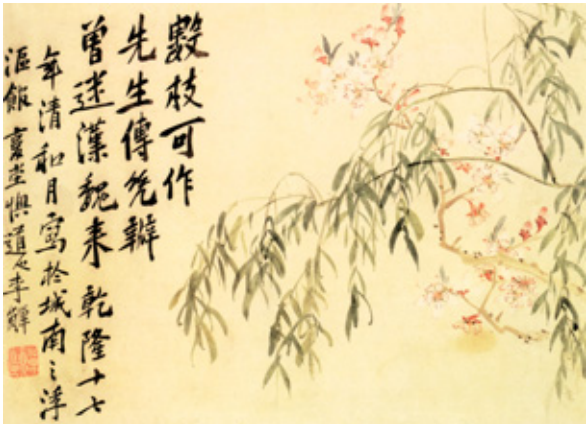 數枝可作
先生傳瓣
曾迷漢魏來 乾隆十七
年清和月寫於城南之浮
漚館 復堂懊道人李鱓